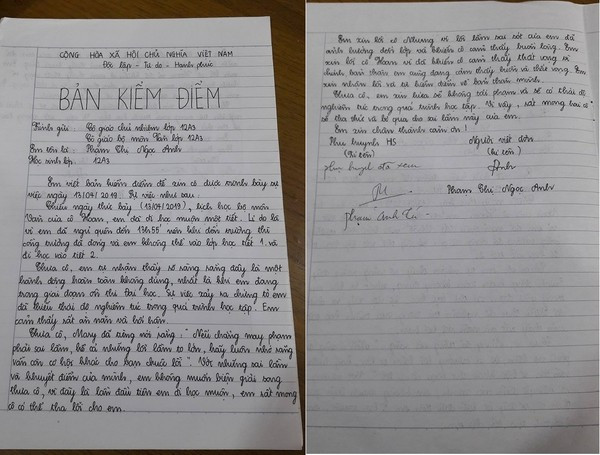 CỘNG HÒA XÃ HỘI CHỦ NGHĨA VIỆT NAM
Độc lập - Tự do - Hạnh phúc
BẢN KIỂM ĐIỂM
Kính gửi: Cô giáo chủ nhiệm lớp 12A3
Cô giáo bộ môn Văn lớp 12A3
Em tên là: Phạm Thị Ngọc Anh
Học sinh lớp: 12A3
Em viết bản kiểm điểm để xin cô được trình bày sự
việc ngày 13/04/2019. Sự việc như sau:
Chiều ngày thứ bảy (13/04/2019), lịch học bộ môn
Văn của cô Hoan, em đã đi học muộn một tiết. Lí do là
vì em đã ngủ quên đến 13h55' nên khi đến trường thì
cổng trường đã đóng và em không thể vào lớp học tiết 1 và
đi học vào tiết 2.
Thưa cô, em tự nhận thấy rõ ràng rằng đây là một
hành động hoàn toàn không đúng, nhất là khi em đang
trong giai đoạn ôn thi Đại học. Sự việc xảy ra chứng tỏ em
đã thiếu thái độ nghiêm túc trong quá trình học tập. Em
cảm thấy rất ăn năn và hối hận.
Thưa cô, Mary đã từng nói rằng: "Nếu chẳng may phạm
phải sai lầm, kể cả những lỗi lầm to lớn, hãy luôn nhớ rằng
vẫn còn cơ hội khác cho bạn chuộc lỗi". Với những sai lầm
và khuyết điểm của mình, em không muốn biện giải song
thưa cô, vì đây là lần đầu tiên em đi học muộn, em rất mong
cô có thể tha lỗi cho em.
Em xin lỗi cô Nhung vì lỗi lầm sai sót của em đã
ảnh hưởng đến lớp và khiến cô cảm thấy buồn lòng. Em
xin lỗi cô Hoan vì đã khiến cô cảm thấy thất vọng vì
chính bản thân em cũng đang cảm thấy buồn và thất vọng. Em
xin nhận lỗi và tự kiểm điểm về bản thân mình.
Thưa cô, em xin hứa sẽ không tái phạm và sẽ có thái độ
nghiêm túc trong quá trình học tập. Vì vậy, rất mong hai cô
sẽ tha thứ và bỏ qua cho sai lầm này của em.
Em xin chân thành cảm ơn!
Phụ huynh HS Người viết đơn
(Kí tên) (Kí tên)
phụ huynh đã xem Anh
Phạm Thị Ngọc Anh
Phạm Anh Tú